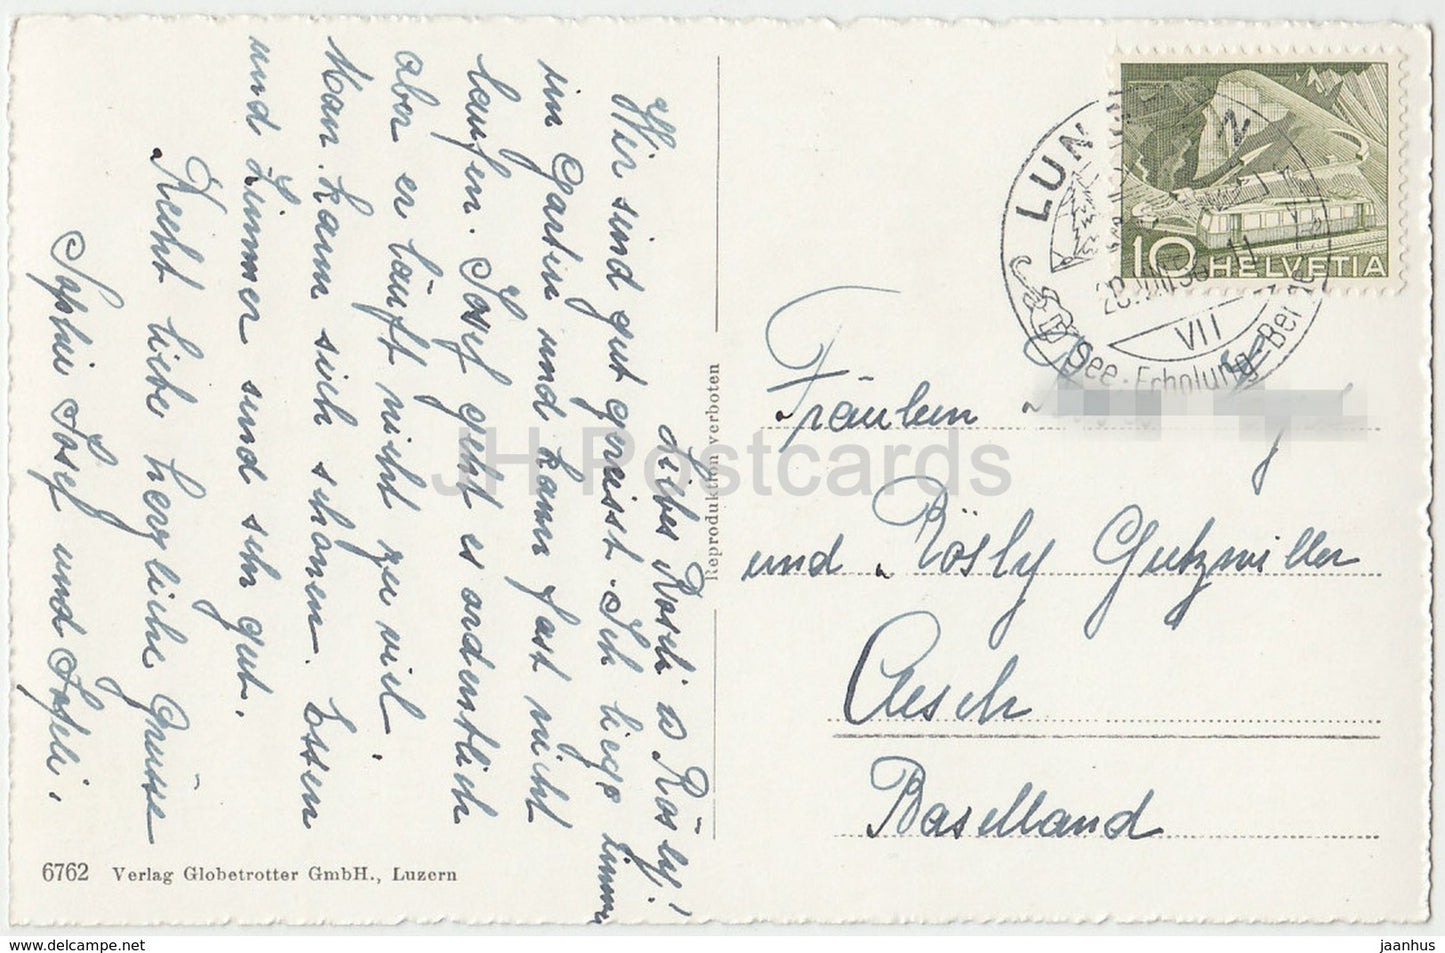 Liebes Rösli u Rösly!
Wir sind gut gereisst. Ich liege immer
im Garten und kann fast nicht
laufen. Josef geht es ordentlich
aber er läuft nicht zu viel.
Man kann sich schonen. Essen
und Zimmer sind sehr gut.
Recht liebe herzliche Grüsse
Sophie Josef und
6762 Verlag Globetrotter GmbH., Luzern
Reproduktion verboten
HELVETIA
10
LUN
VII
See-Erholung-Ber
Fräulein
und Rösly Gutzwiller
Aesch
Baselland
JH Postcards
www.delcampe.net
jaanhus